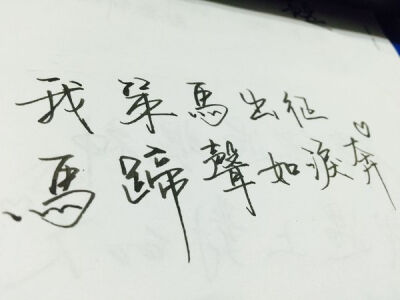 我策馬出征
馬蹄聲如淚奔